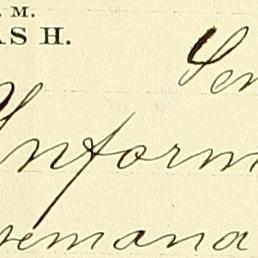 . M.
AS H.
Sen
Inform
emana